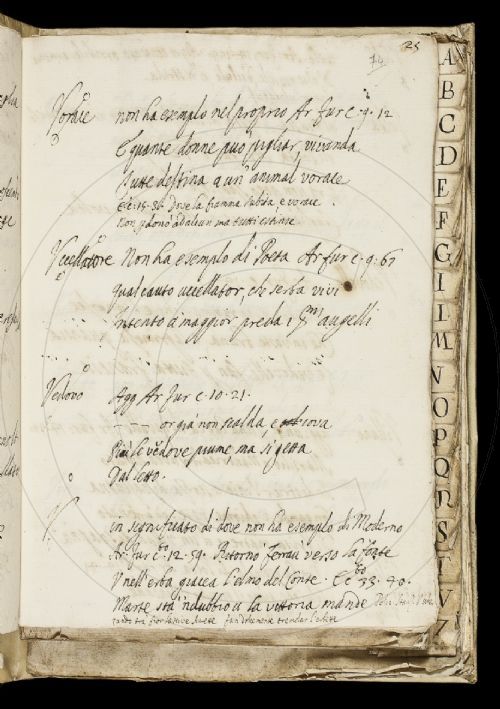 25
74
Vorace non ha esempio nel proprio Ar fur c. 9. 12
E quante donne puo pigliar, vivanda
Tutte destina a un' animal vorace
E c. 15. 36. Dove la fiamma subita, e vorace
Non perdonò ad alcun ma tutti estinse
Uccellatore Non ha esempio di Poeta Ar fur c. 9. 67
qual cauto uccellator, che serba vivi
Intento a maggior preda i p.mi augelli
Vedovo Agg Ar fur c. 10. 21.
or già non scalda, e trova
Più le vedove piume, ma si getta
Dal letto.
V in significato di dove non ha esempio di Moderno
Ar. fur C.to 12. 59. Ritornò Ferraù verso la fonte
V nell'erba giacea l'elmo del Conte. E c.to 33. 40.
Marte sta in dubbio a la vittoria mande
A
B
C
D
E
F
G
I
L
M
N
O
P
Q
R
S
T
V
Z